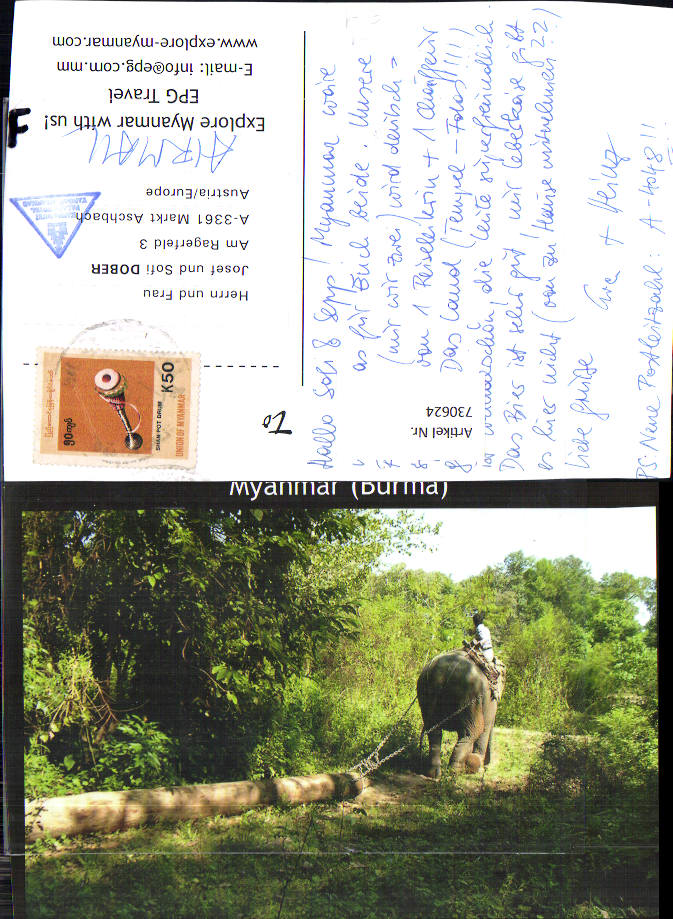 Hallo Sofi & Sepp! Myanmar wäre
as für Euch beide. Unsere
(nur wir zwei) wird deutsch-
von 1 Reiseleiterin + 1 Chauffeur
Das Land (Tempel-Fotos!!!!)
ist wunderschön, die Leute superfreundlich
Das Bier ist sehr gut, nur Leberkäse gibt
es hier nicht (von zu Hause mitnehmen??)
Liebe Grüße
+ Heinz
PS: Neue Postleitzahl: A-4048!!
Artikel Nr.
730624
To
UNION OF MYANMAR
SHAN POT DRUM
K50
Herrn und Frau
Josef und Sofi DOBER
Am Ragerfeld 3
A-3361 Markt Aschbach
Austria/Europe
AIRMAIL
F
Explore Myanmar with us!
EPG Travel
E-mail: info@epg.com.mm
www.explore-myanmar.com
Myanmar (Burma)